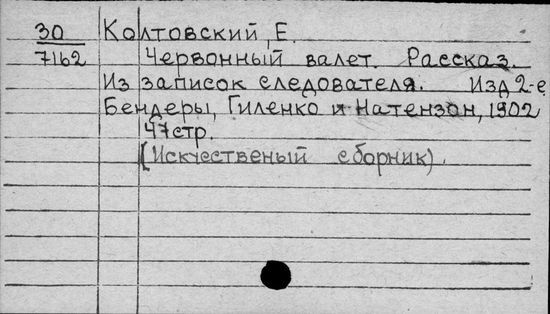 30 Колтовский, Е.
7162 Червонный валет. Рассказ.
Из записок следователя. Изд 2-е
Бендеры, Гиленко и Натензон, 1902
47 стр.
(Искчественый сборник).